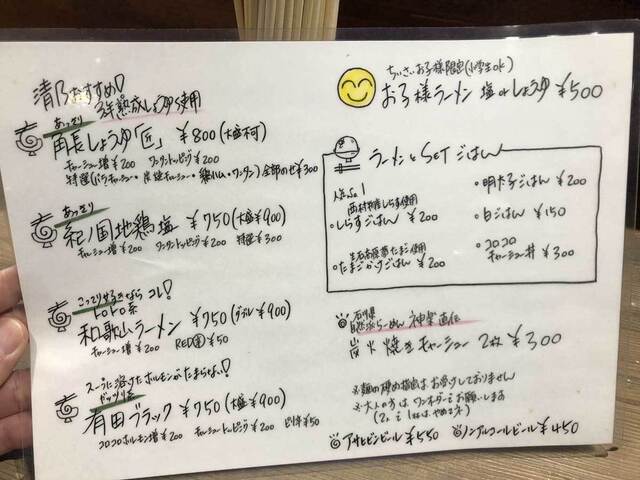 清乃おすすめ!
3年熟成しょうゆ使用
あっさり
角長しょうゆ「匠」 ¥800(大盛不可)
チャーシュー増¥200 ワンタントッピング¥200
特選(バラチャーシュー・炭焼チャーシュー・鶏ハム・ワンタン)全部のせ¥300
あっさり
紀ノ国地鶏塩 ¥750(大盛¥900)
チャーシュー増¥200 ワンタントッピング¥200 特選¥300
こってり好きなら コレ!
トロトロ系
和歌山ラーメン ¥750(ダブル¥900)
チャーシュー増¥200 RED(園)¥50
スープに溶けたホルモンがたまらない!
ガッツリ系
有田ブラック ¥750(大盛¥900)
コロコロホルモン増¥200 チャーシュートッピング¥200 ピリ辛¥50
ちいさいお子様限定(小学生ok)
お子様ラーメン 塩orしょうゆ ¥500
ラーメンと SET ごはん
人気No.1
西村物産しらす使用
・しらすごはん ¥200
生石高原のたまご使用
・たまごかけごはん ¥200
・明太子ごはん ¥200
・白ごはん ¥150
・コロコロ
チャーシュー丼 ¥300
石川県
自然派らーめん 神楽 直伝
炭火焼きチャーシュー 2枚 ¥300
※麺の硬め指定は お受けしておりません
※大人の方は、ワンオーダーをお願いします
(2人で1杯は、やめてネ)
アサヒビンビール¥550
ノンアルコールビール¥450